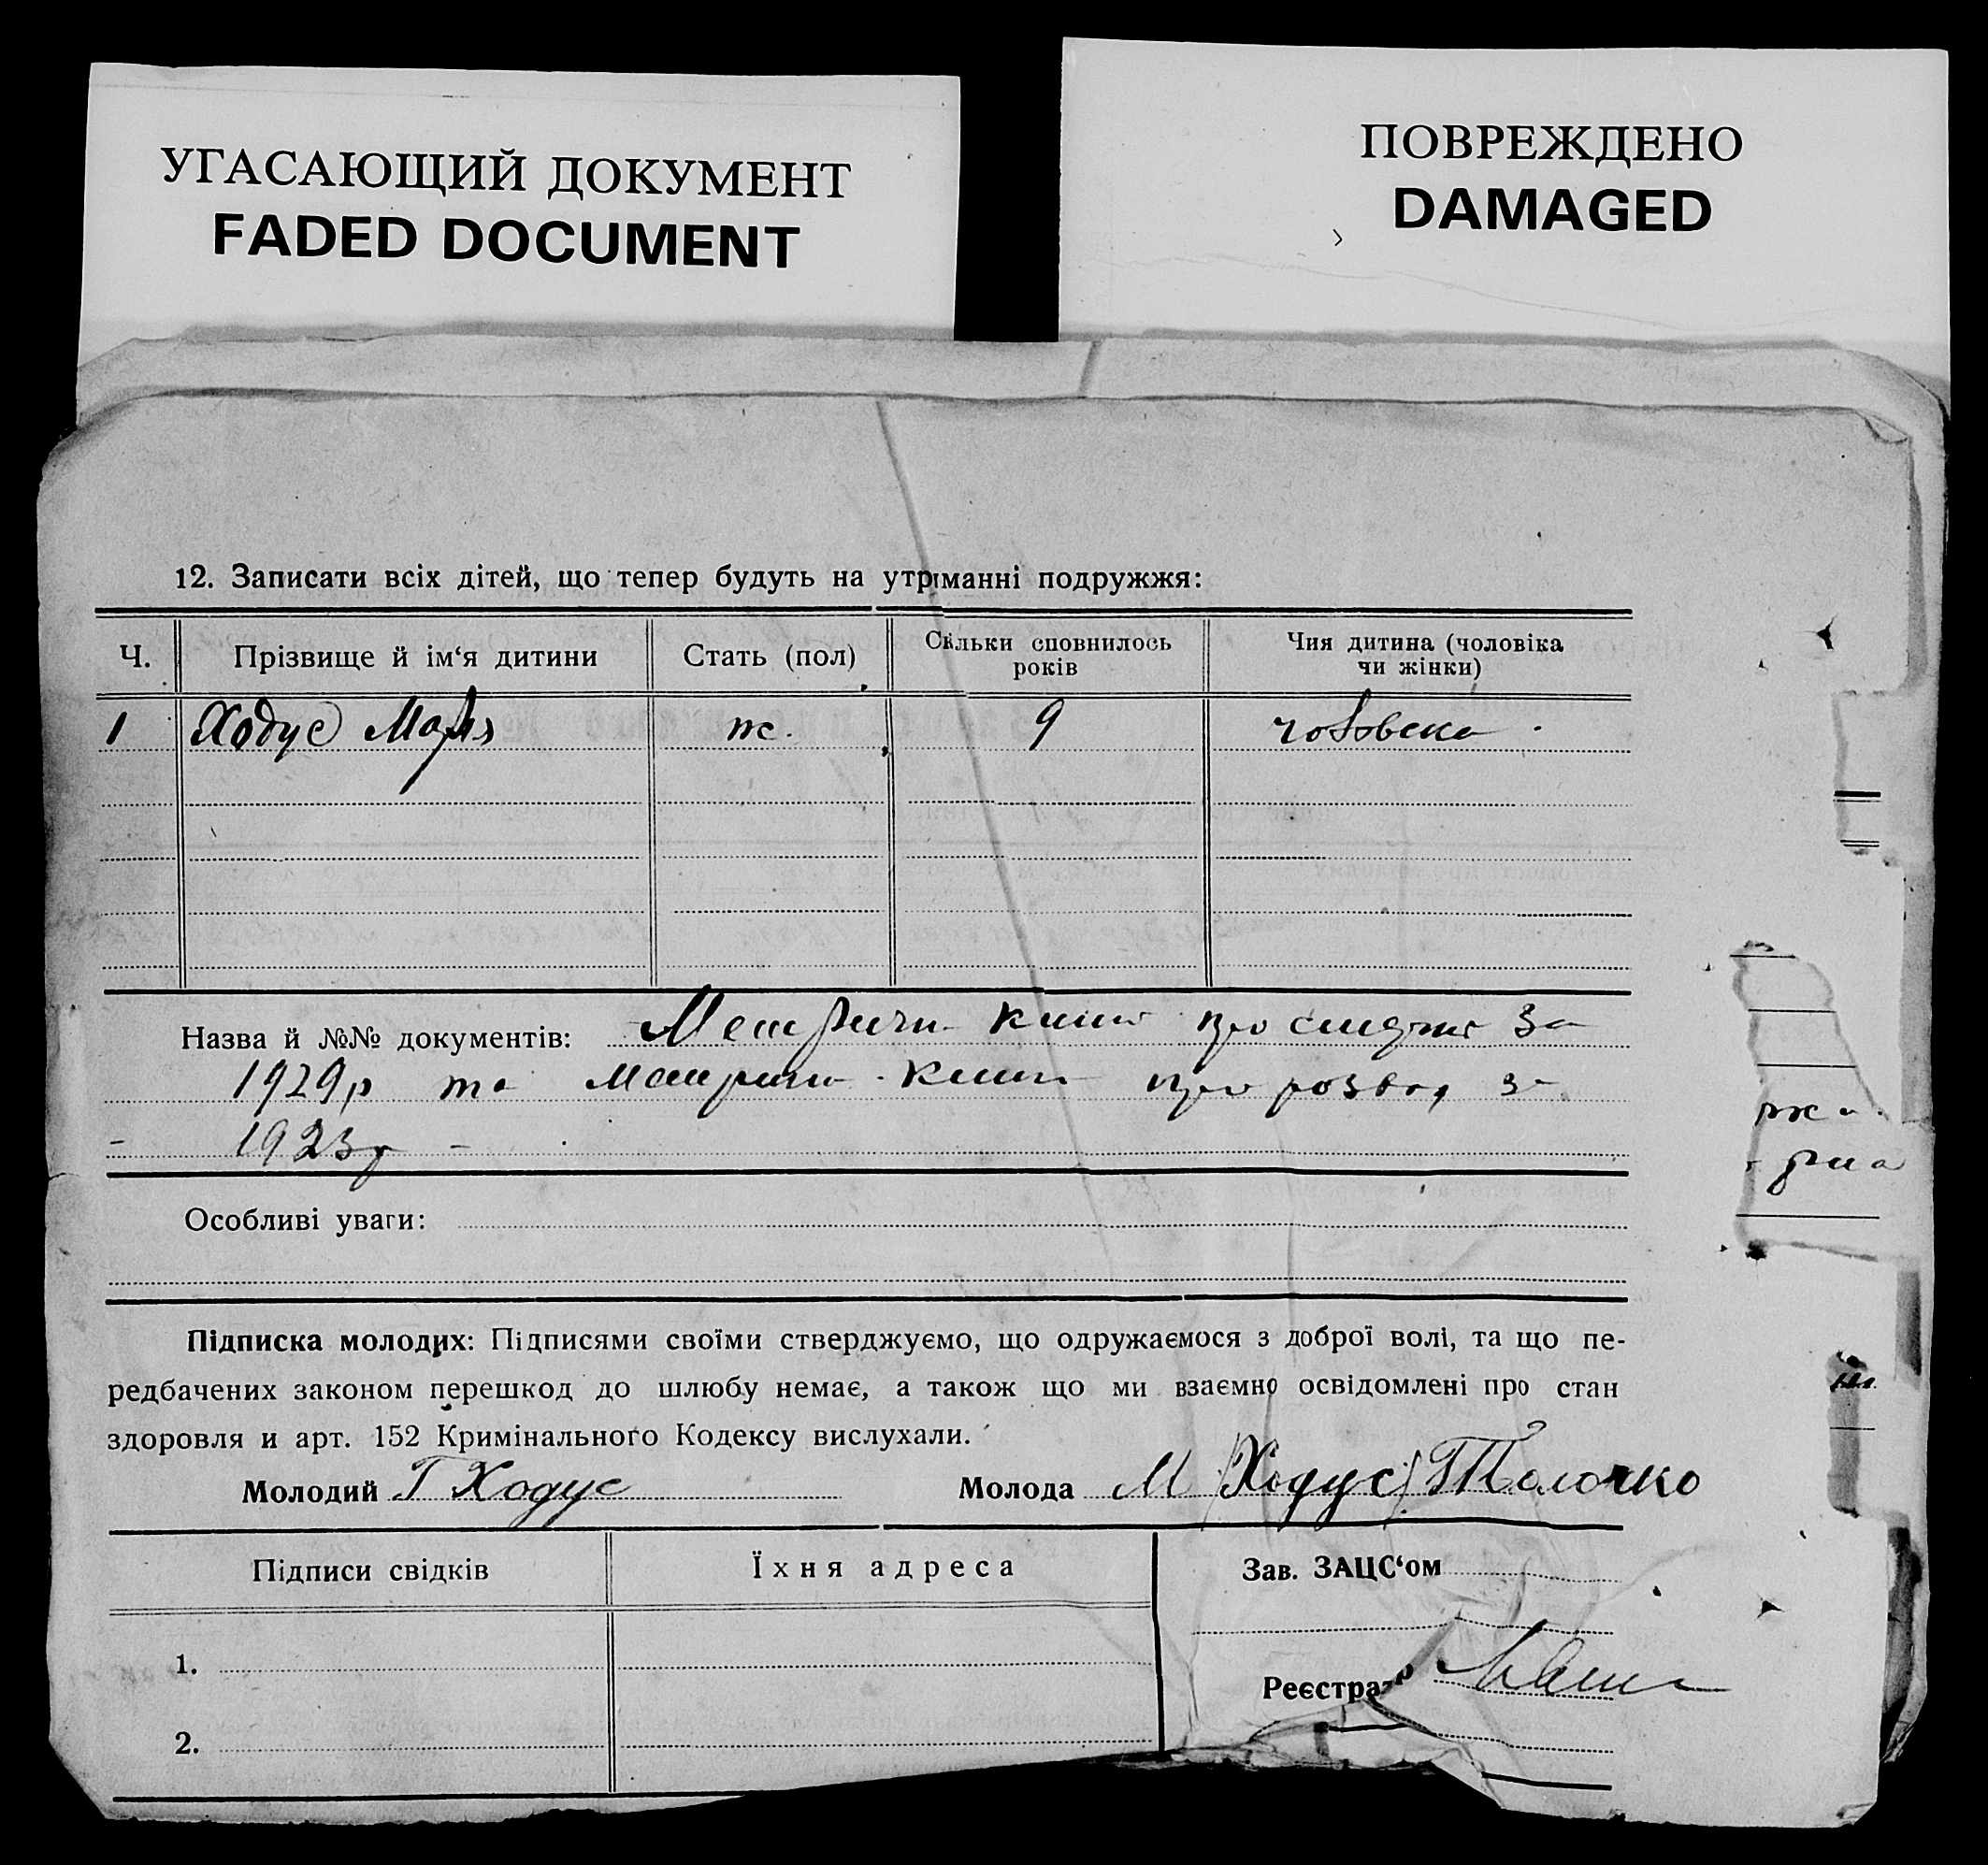 УГАСАЮЩИЙ ДОКУМЕНТ
FADED DOCUMENT
ПОВРЕЖДЕНО
DAMAGED
12. Записати всіх дітей, що тепер будуть на утриманні подружжя:
Ч. Прізвище й ім‘я дитини Стать (пол) Скільки сповнилось років Чия дитина (чоловіка чи жінки)
1 Ходус Марія ж. 9 чоловека
Назва й №№ документів: Метричн книга про за
1929р та Метрич книга про развод за
1923р
Особливі уваги:
Підписка молодих: Підписями своїми стверджуємо, що одружаємося з доброї волі, та що пе-
редбачених законом перешкод до шлюбу немає, а також що ми взаємно освідомлені про стан
здоровля и арт. 152 Кримінального Кодексу вислухали.
Молодий Г Ходус Молода М (Ходус) Толочко
Підписи свідків Їхня адреса Зав. ЗАЦС‘ом
1.
Реєстратор
2.